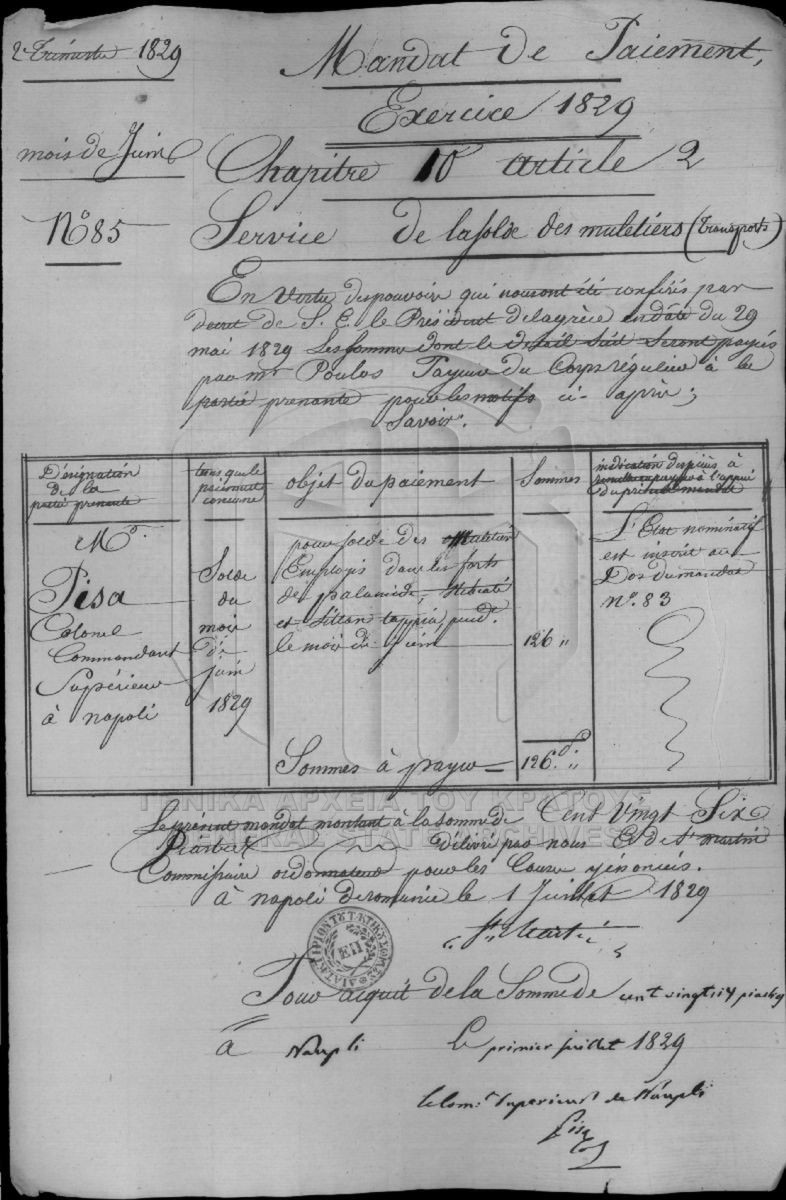 2e Trimestre 1829
Mandat de Paiement,
Exercice 1829
mois de Juin
Chapitre 10 article 2
No 85
Service de la solde des muletiers (Transports)
En vertu des pouvoirs qui nous ont été conférés par
decret de S. E. le Président de la grèce en date du 29
mai 1829 Les sommes dont le détail suit seront payées
par mr Poulos Payeur du Corps régulier à la
partie prenante pour les motifs ci-après;
Savoir.
Désignation
de la
partie prenante
tems que le
paiement
concerne
objet du paiement
Sommes
indication des pièces à
à l'appui
du présent mandat
Mr.
Pisa
Colonel
Commandant
Supérieur
à napoli
Solde
du
mois
de
juin
1829
pour solde des Muletiers
Employés dans les forts
de palamide,
et pend.t
le mois de Juin
126 "
L'Etat nominatif
est inscrit au
Dos du mandat
no. 83
Sommes à payer 126 d. "
ΓΕΝΙΚΑ ΑΡΧΕΙΑ ΤΟΥ ΚΡΑΤΟΥΣ
GENERAL STATE ARCHIVES
Le présent mandat montant à la somme de Cent Vingt Six
Piastres délivré par nous de St martin
Commissaire ordonnateur pour les Causes y énoncées.
à napoli de romanie le 1 Juillet 1829
St Martin
Pour acquit de la Somme de cent vingt six piastres
à Naupli Le primier juillet 1829
le Com.t Superieur de Naupli
Pisa